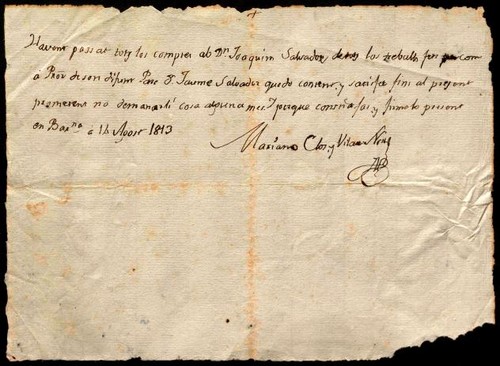 Havent passat tots los comptes ab Dn. Joaquim Salvador de tots los treballs fets per com
a Pror. de son difunt Pare Dn. Jaume Salvador quedo content, y satisfet fins al present
prometent no demanarli cosa alguna mes, y perque conste fas, y firmo lo present
en Barna. á 14 Agost 1813
Mariano Clos, y Vilar